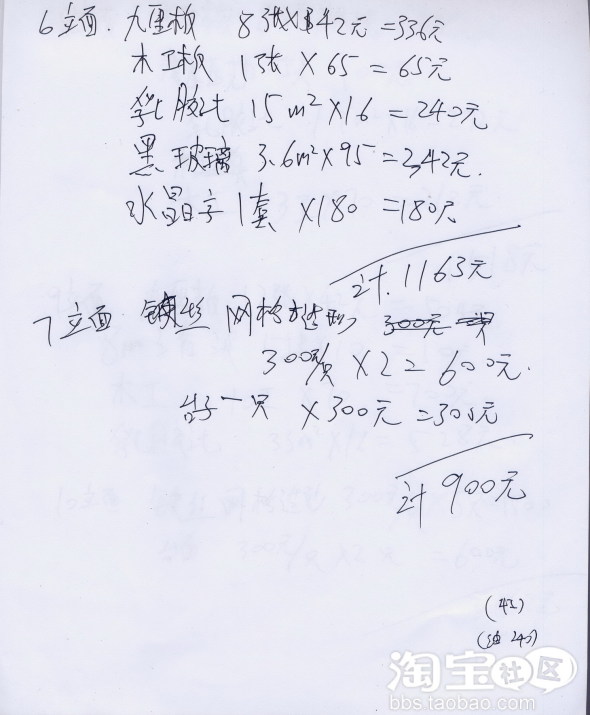 6立面. 九厘板 8张×42元=336元
木工板 1张×65=65元
乳胶漆 15m²×16=240元
黑玻璃 3.6m²×95=342元.
水晶字 1套×180=180元
计. 1163元
7立面 铁丝网格造形 300元一只
300元/只×2=600元.
台子一只×300元=300元
计900元
(油240)
淘宝社区
bbs.taobao.com